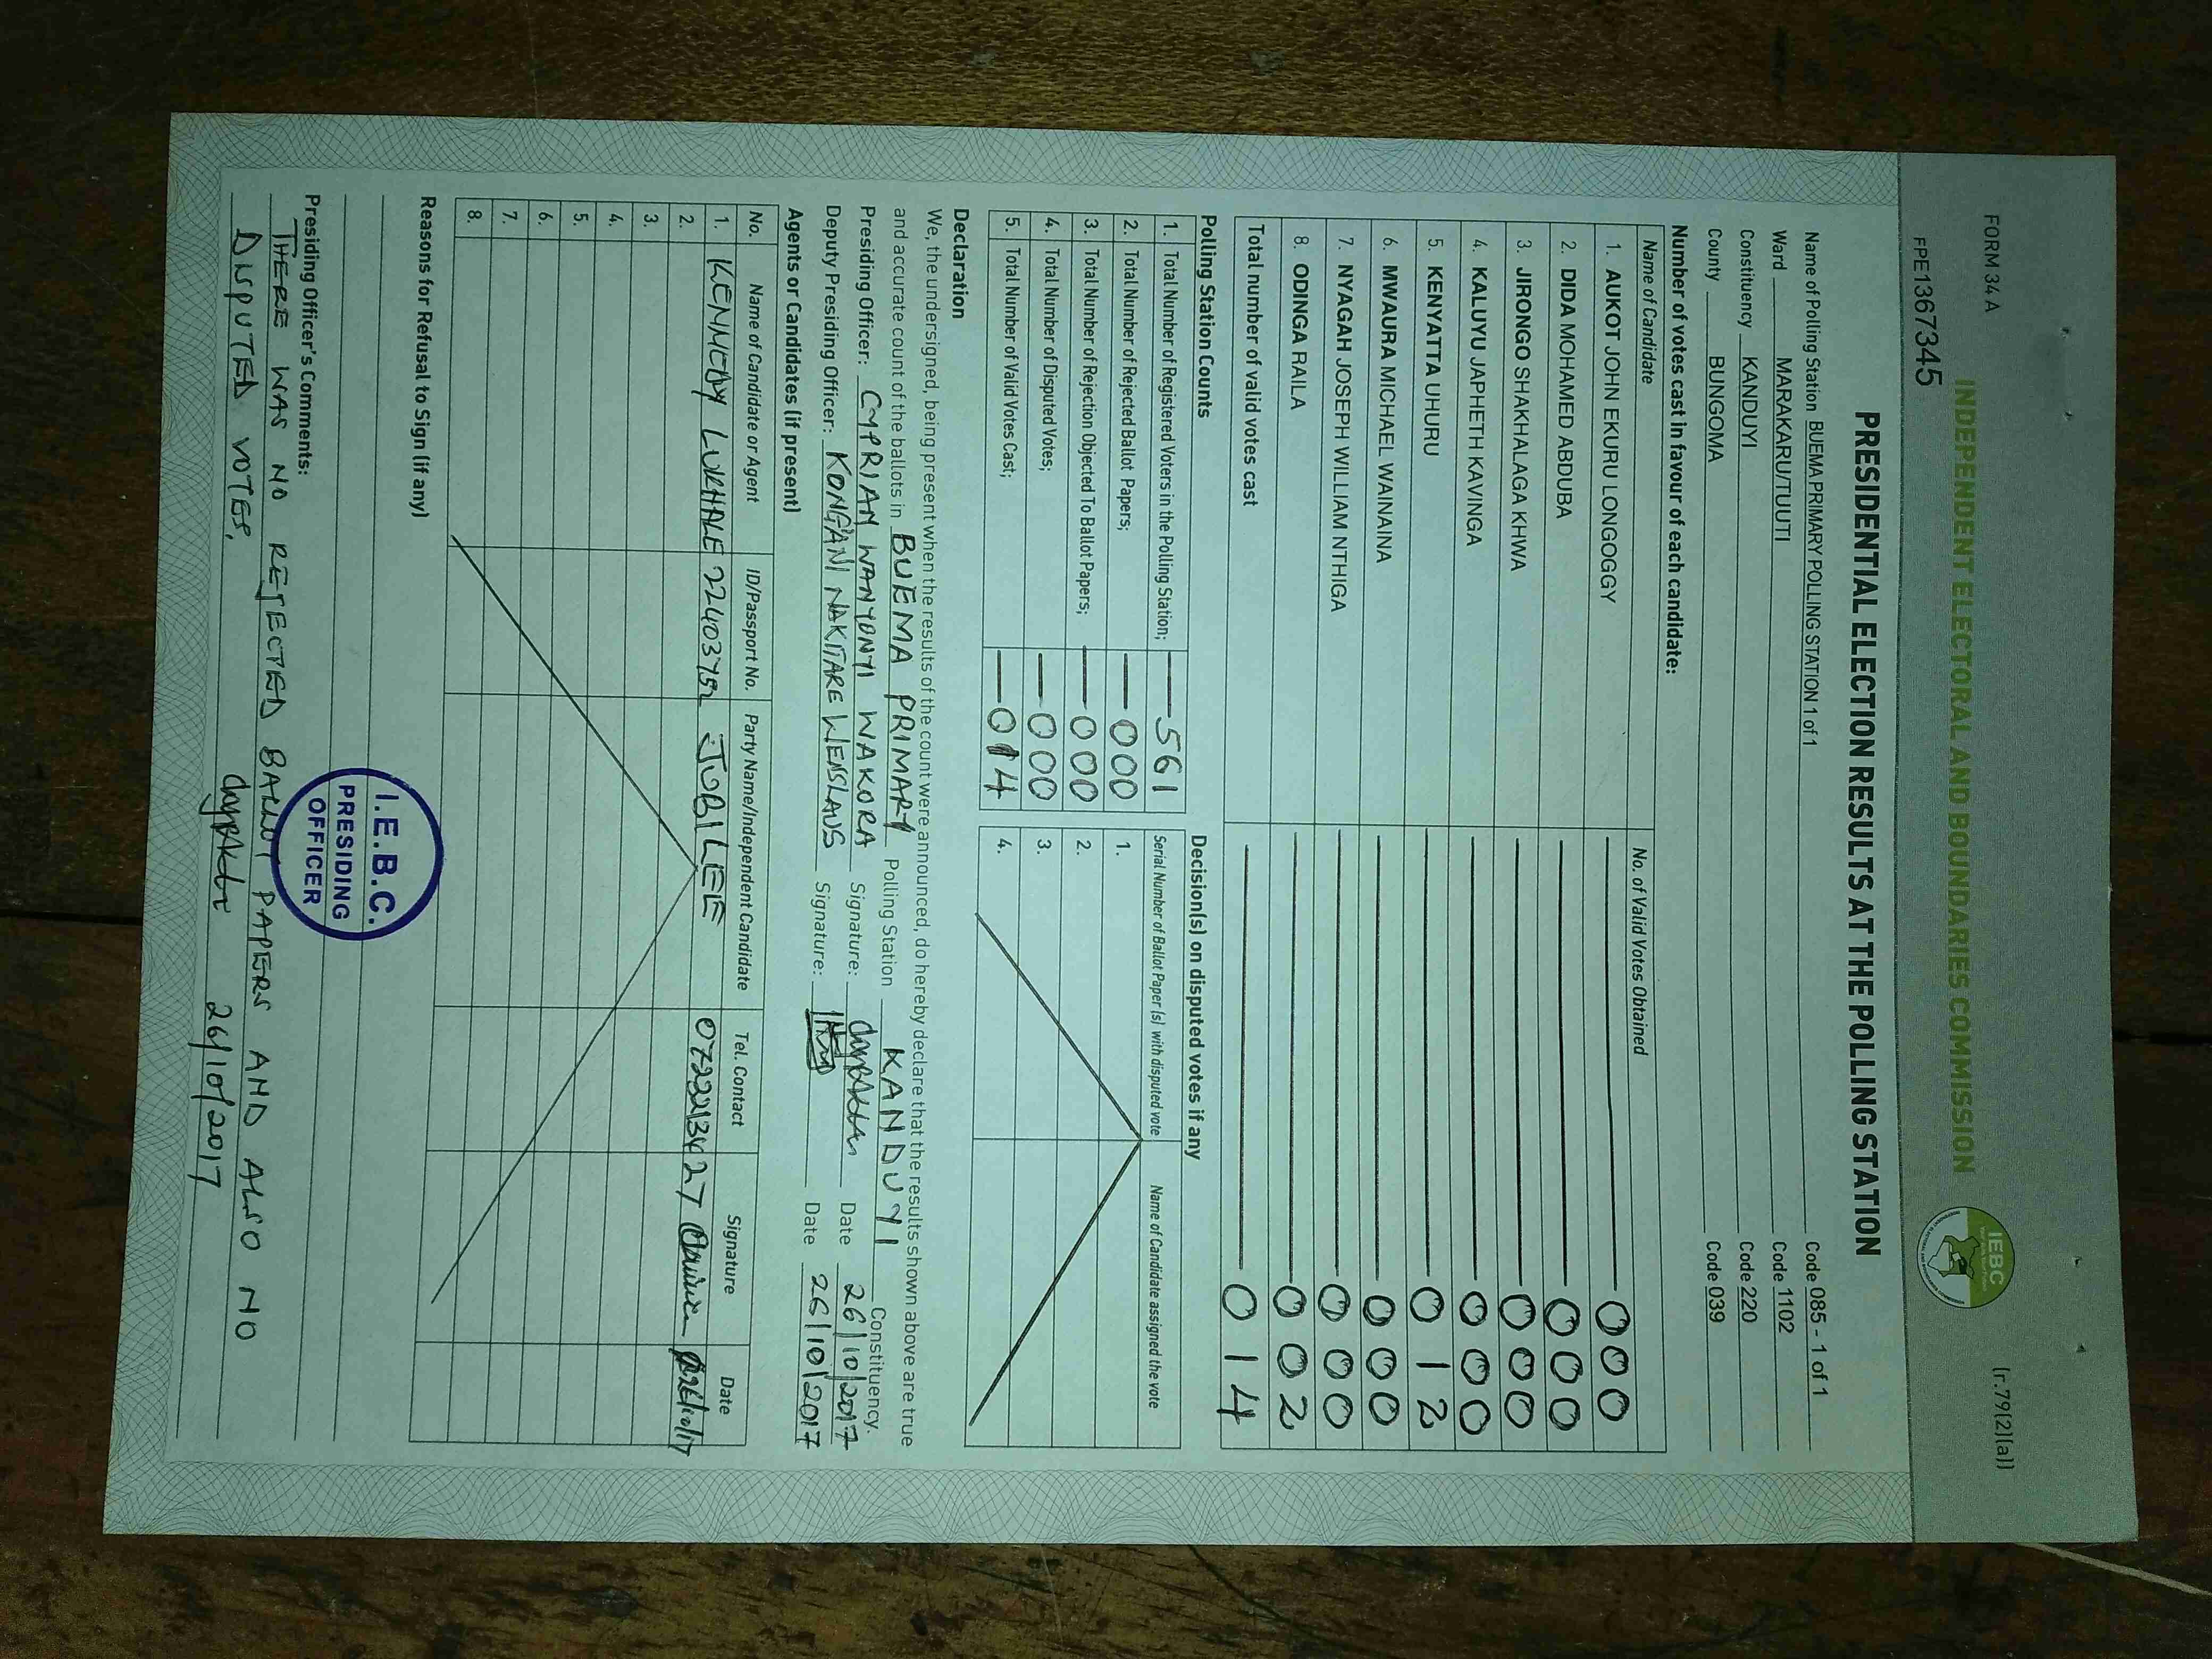 FORM 34 A
(r.79(2)(a))
INDEPENDENT ELECTORAL AND BOUNDARIES COMMISSION
IEBC
FPE1367345
PRESIDENTIAL ELECTION RESULTS AT THE POLLING STATION
Name of Polling Station BUEMA PRIMARY POLLING STATION 1 of 1 Code 085 - 1 of 1
Ward MARAKARU/TUUTI Code 1102
Constituency KANDUYI Code 220
County BUNGOMA Code 039
Number of votes cast in favour of each candidate:
Name of Candidate No. of Valid Votes Obtained
1. AUKOT JOHN EKURU LONGOGGY 000
2. DIDA MOHAMED ABDUBA 000
3. JIRONGO SHAKHALAGA KHWA 000
4. KALUYU JAPHETH KAVINGA 000
5. KENYATTA UHURU 012
6. MWAURA MICHAEL WAINAINA 000
7. NYAGAH JOSEPH WILLIAM NTHIGA 000
8. ODINGA RAILA 002
Total number of valid votes cast 014
Polling Station Counts
1. Total Number of Registered Voters in the Polling Station; 561
2. Total Number of Rejected Ballot Papers; 000
3. Total Number of Rejection Objected To Ballot Papers; 000
4. Total Number of Disputed Votes; 000
5. Total Number of Valid Votes Cast; 014
Decision(s) on disputed votes if any
Serial Number of Ballot Paper (s) with disputed vote Name of Candidate assigned the vote
1.
2.
3.
4.
Declaration
We, the undersigned, being present when the results of the count were announced, do hereby declare that the results shown above are true
and accurate count of the ballots in BUEMA PRIMARY Polling Station KANDUYI Constituency.
Presiding Officer: CYPRIAN WANYONYI WAKORA Signature: Date 26/10/2017
Deputy Presiding Officer: KONGANI NAKITARE WENSLAUS Signature: Date 26/10/2017
Agents or Candidates (if present)
No. Name of Candidate or Agent ID/Passport No. Party Name/Independent Candidate Tel. Contact Signature Date
1. KENNEDY LUKHALE 22403752 JUBILEE
2.
3.
4.
5.
6.
7.
8.
Reasons for Refusal to Sign (if any)
I.E.B.C.
PRESIDING
OFFICER
Presiding Officer's Comments:
THERE WAS NO REJECTED BALLOT PAPERS AND ALSO NO
DISPUTED VOTES.
26/10/2017